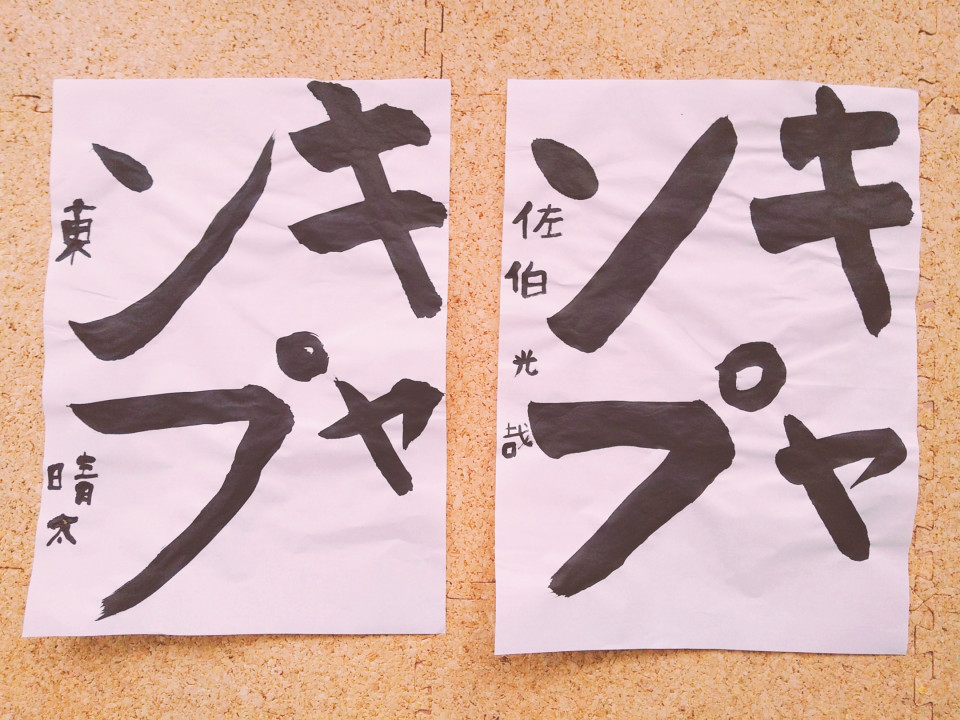 キャ
ンプ
佐伯光哉
キャ
ンプ
東晴太